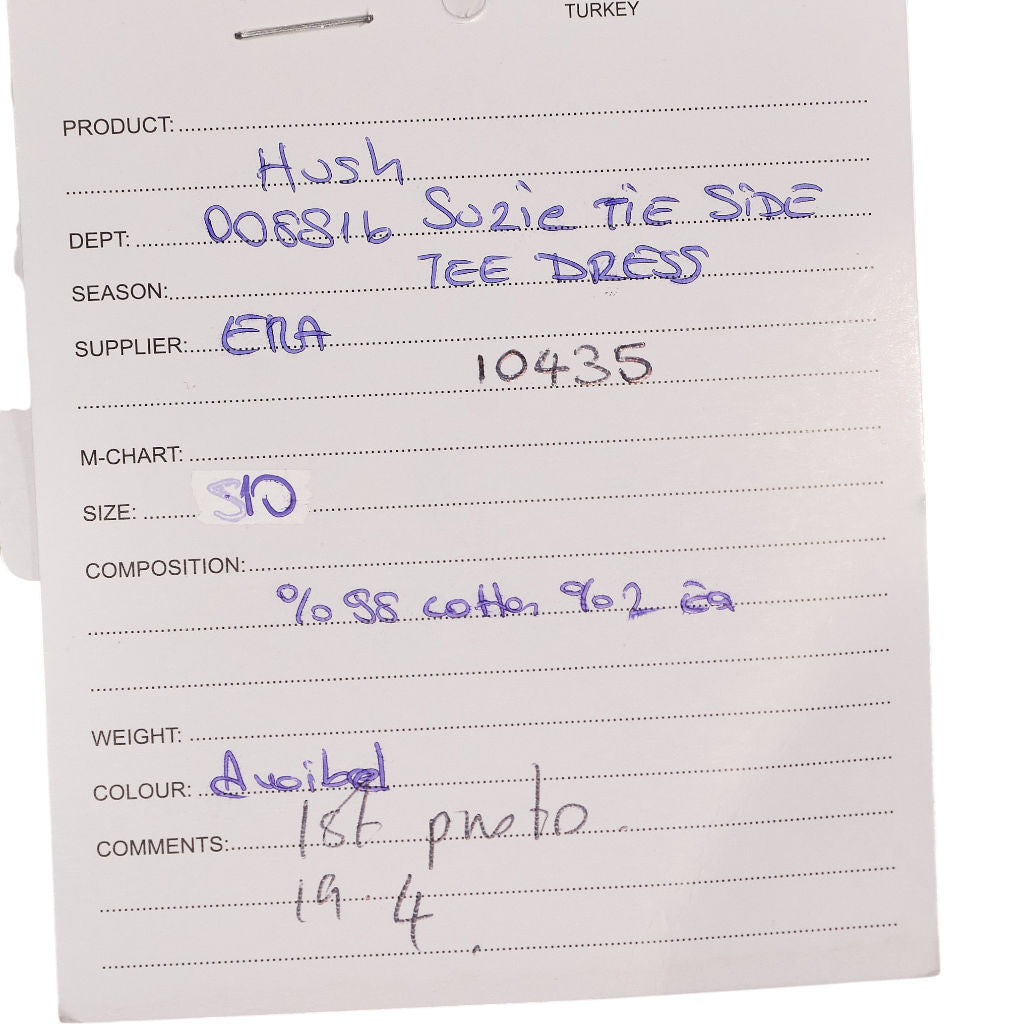 TURKEY
PRODUCT:
Hush
DEPT: 008816 Suzie TiE SiDE
SEASON: TEE DRESS
SUPPLIER: ERA
10435
M-CHART:
SIZE: 10
COMPOSITION:
%98 cotton %2 Ea
WEIGHT:
COLOUR:
COMMENTS: 1st photo
19.4.